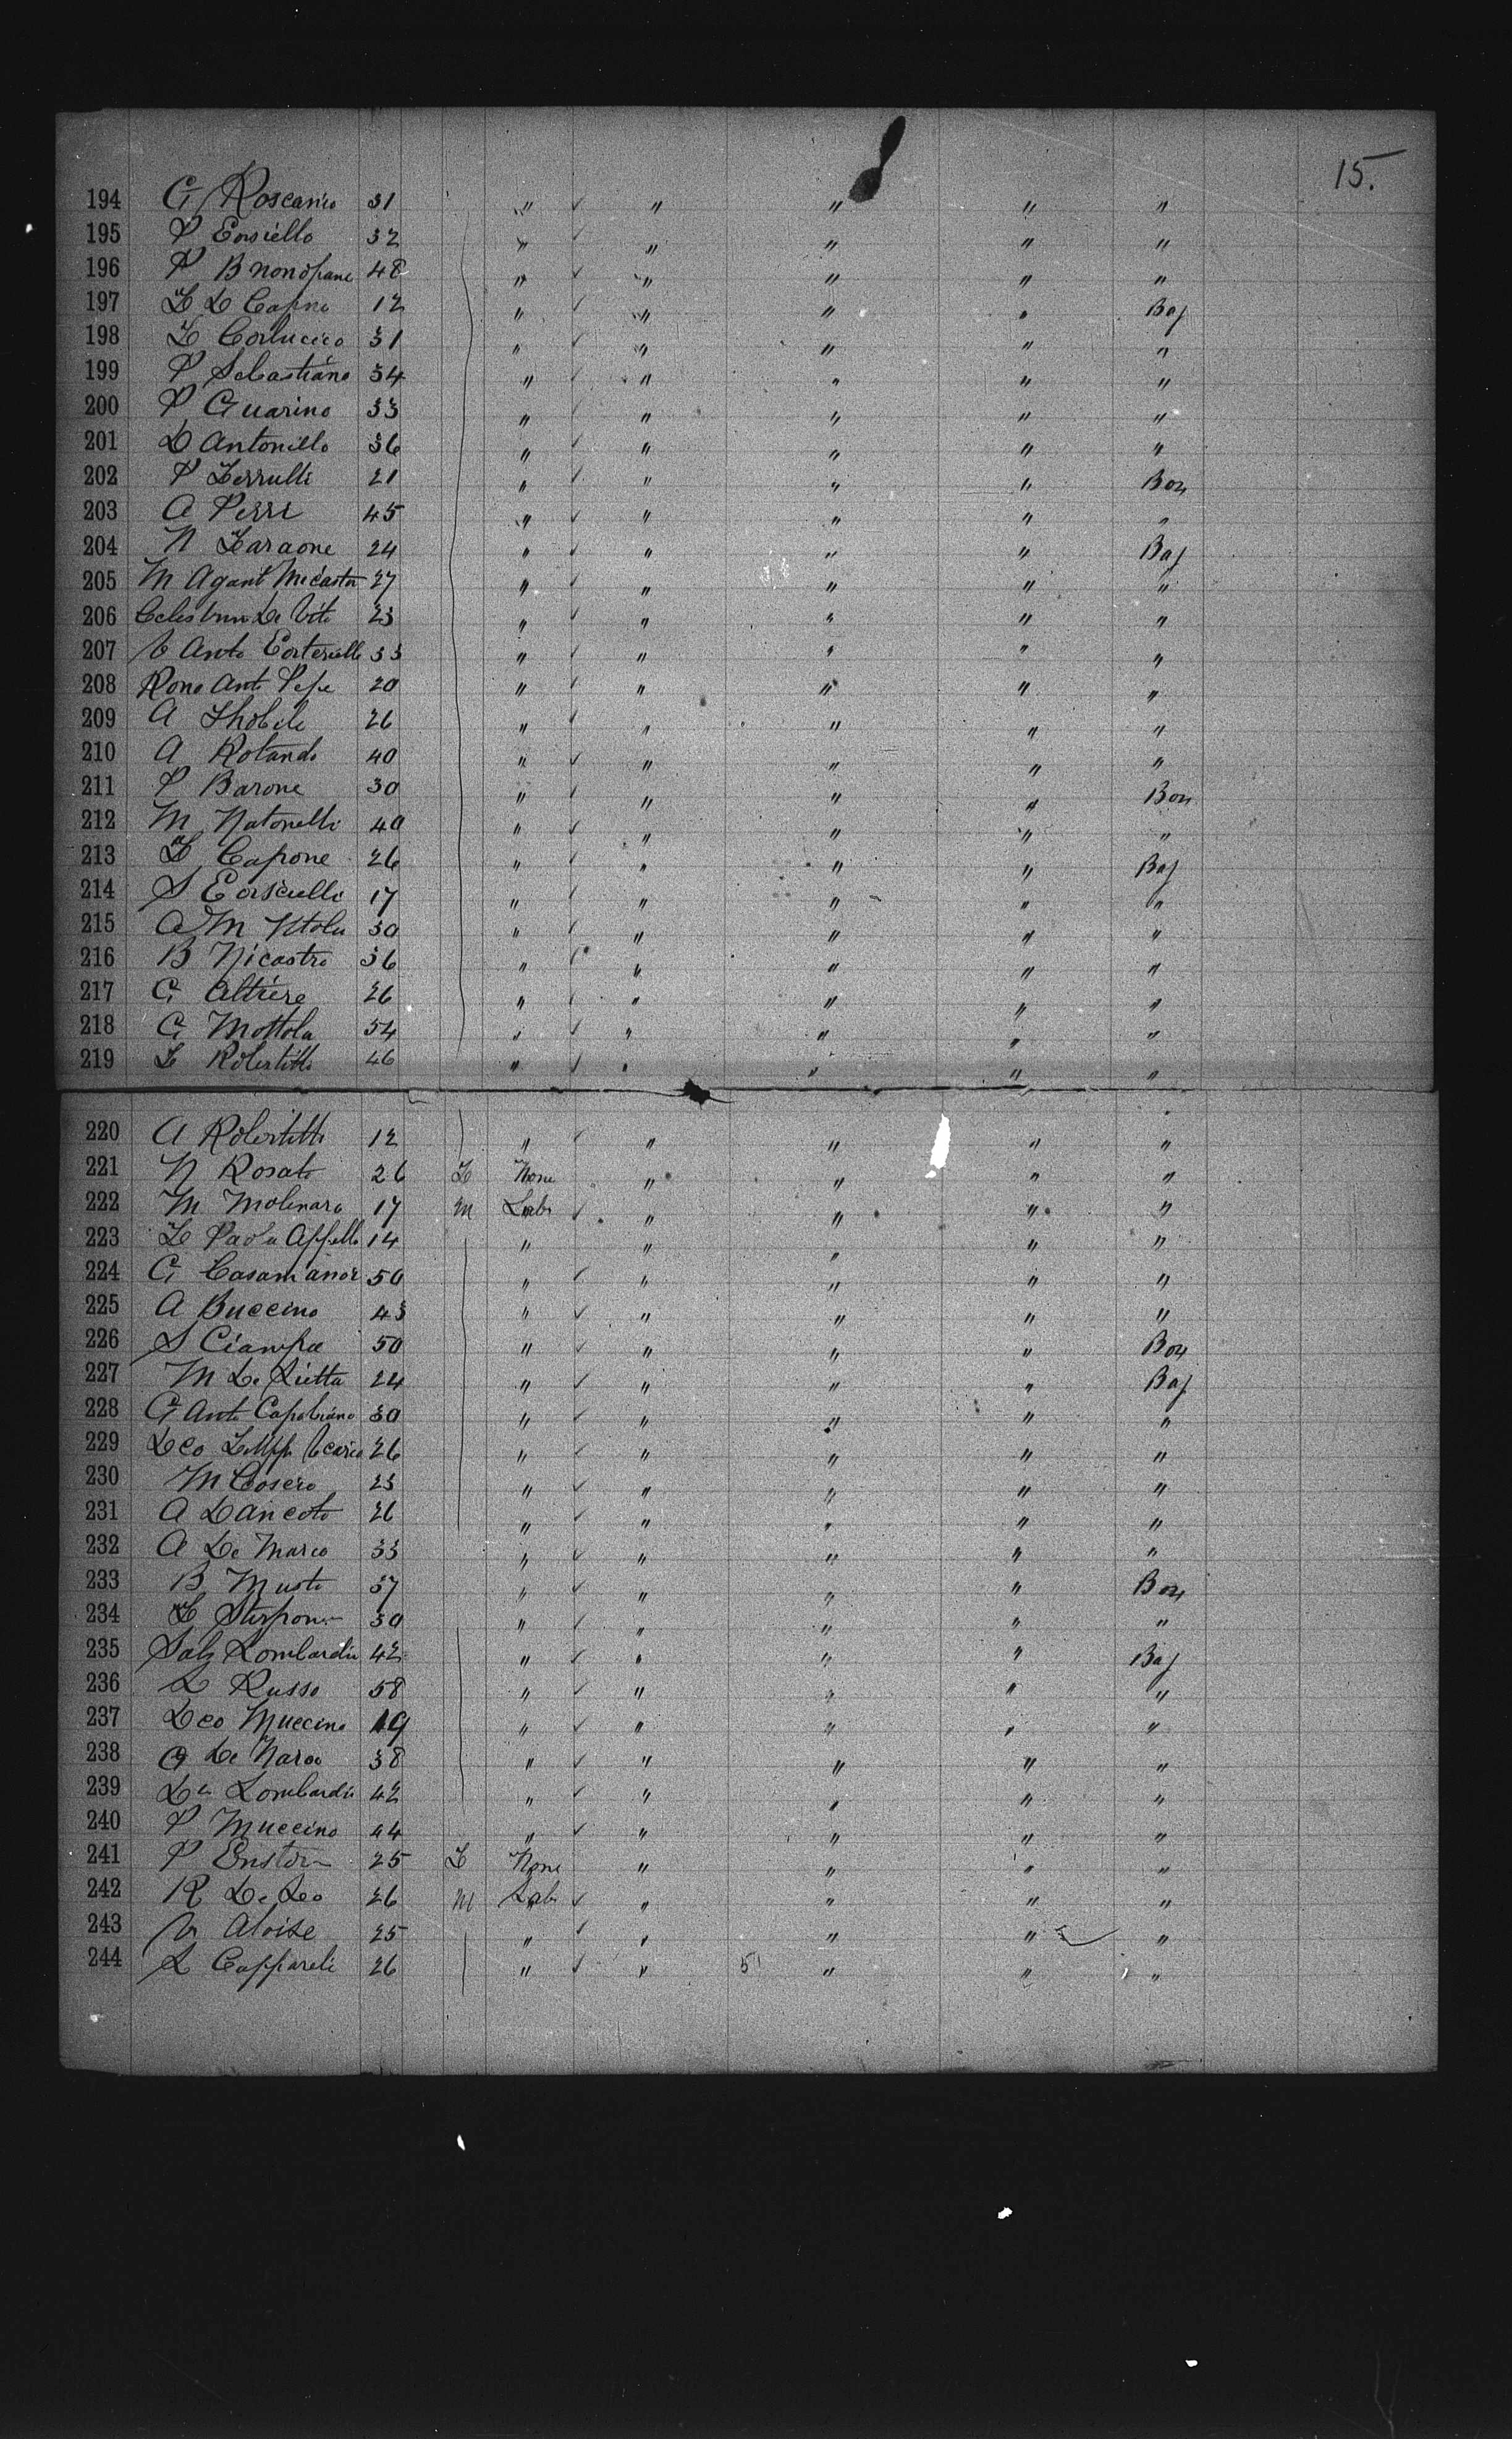 15.
194 G Roscanio 31 " ✓ " " " "
195 P Eorsiello 32 " ✓ " " " "
196 P Bnonopane 48 " ✓ " " " "
197 F D Capno 12 " ✓ " " " Bag
198 F Corlucico 31 " ✓ " " " "
199 P Sebastiano 34 " ✓ " " " "
200 P Guarino 33 " ✓ " " " "
201 D Antoniello 36 " ✓ " " " "
202 P Ferrulli 21 " ✓ " " " Box
203 A Perri 45 " ✓ " " " "
204 N Faraone 24 " ✓ " " " Bag
205 M Agant Micastr 27 " ✓ " " " "
206 De Vito 23 " ✓ " " " "
207 V Anto 33 " ✓ " " " "
208 Rono Anto Pepe 20 " ✓ " " " "
209 A 26 " ✓ " " " "
210 A Rotando 40 " ✓ " " " "
211 P Barone 30 " ✓ " " " Box
212 M Natonelli 40 " ✓ " " " "
213 F Capone 26 " ✓ " " " Bag
214 S Eorsciello 17 " ✓ " " " "
215 A M 30 " ✓ " " " "
216 B Nicastro 36 " ✓ " " " "
217 G Altiere 26 " ✓ " " " "
218 G Mottola 54 " ✓ " " " "
219 F Robertitti 46 " ✓ " " " "
220 A Robertitti 12 " ✓ " " " "
221 N Rosato 26 F None " " " "
222 M Molinaro 17 M Labr ✓ " " " "
223 F Paola Appello 14 " " " " "
224 G 50 " ✓ " " " "
225 A Buccino 43 " ✓ " " " "
226 S Ciampa 50 " ✓ " " " Box
227 M De Lietta 24 " ✓ " " " Bag
228 G Anto Capobiano 30 " ✓ " " " "
229 Leo 26 " ✓ " " " "
230 M Cosero 23 " ✓ " " " "
231 A 26 " ✓ " " " "
232 A De Marco 33 " ✓ " " " "
233 B Musto 37 " ✓ " " " Box
234 F Sterpone 30 " ✓ " " " "
235 Lombardi 42 " ✓ " " " Bag
236 L Russo 58 " ✓ " " " "
237 Leo Muccino 19 " ✓ " " " "
238 De Naroo 38 " ✓ " " " "
239 Lombardi 42 " ✓ " " " "
240 P Muccino 44 " ✓ " " " "
241 P 25 F None " " " "
242 R De Leo 26 M Labr ✓ " " " "
243 V Aloise 25 " ✓ " " " "
244 L Cappareli 26 " ✓ " 5 " " "